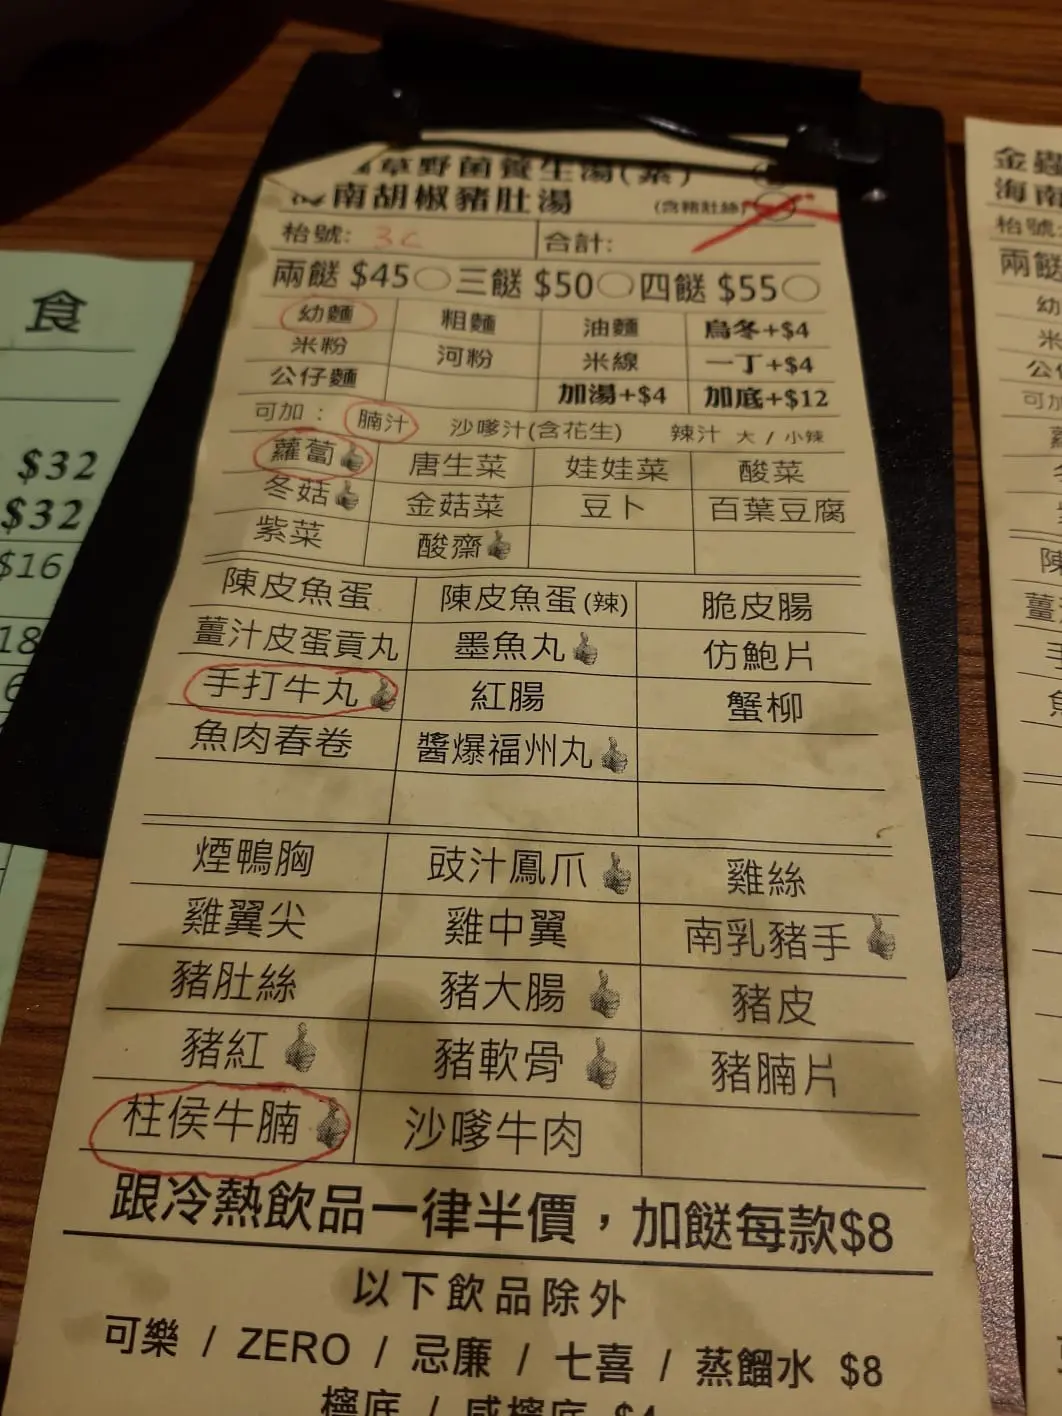 草野菌養生湯(素)
南胡椒豬肚湯 (含豬肚絲)
枱號: 3C 合計:
兩餸 $45○ 三餸 $50○ 四餸 $55○
幼麵 粗麵 油麵 烏冬+$4
米粉 河粉 米線 一丁+$4
公仔麵 加湯+$4 加底+$12
可加： 腩汁 沙嗲汁(含花生) 辣汁 大 / 小辣
蘿蔔 唐生菜 娃娃菜 酸菜
冬菇 金菇菜 豆卜 百葉豆腐
紫菜 酸齋
陳皮魚蛋 陳皮魚蛋(辣) 脆皮腸
薑汁皮蛋貢丸 墨魚丸 仿鮑片
手打牛丸 紅腸 蟹柳
魚肉春卷 醬爆福州丸
煙鴨胸 豉汁鳳爪 雞絲
雞翼尖 雞中翼 南乳豬手
豬肚絲 豬大腸 豬皮
豬紅 豬軟骨 豬腩片
柱侯牛腩 沙嗲牛肉
跟冷熱飲品一律半價，加餸每款$8
以下飲品除外
可樂 / ZERO / 忌廉 / 七喜 / 蒸餾水 $8
檸底 / 咸檸底 $4
食
$32
$32
$16
18
6
金蟲
海南
枱號:
兩餸
幼
米
公
可加
陳
薑
手
魚